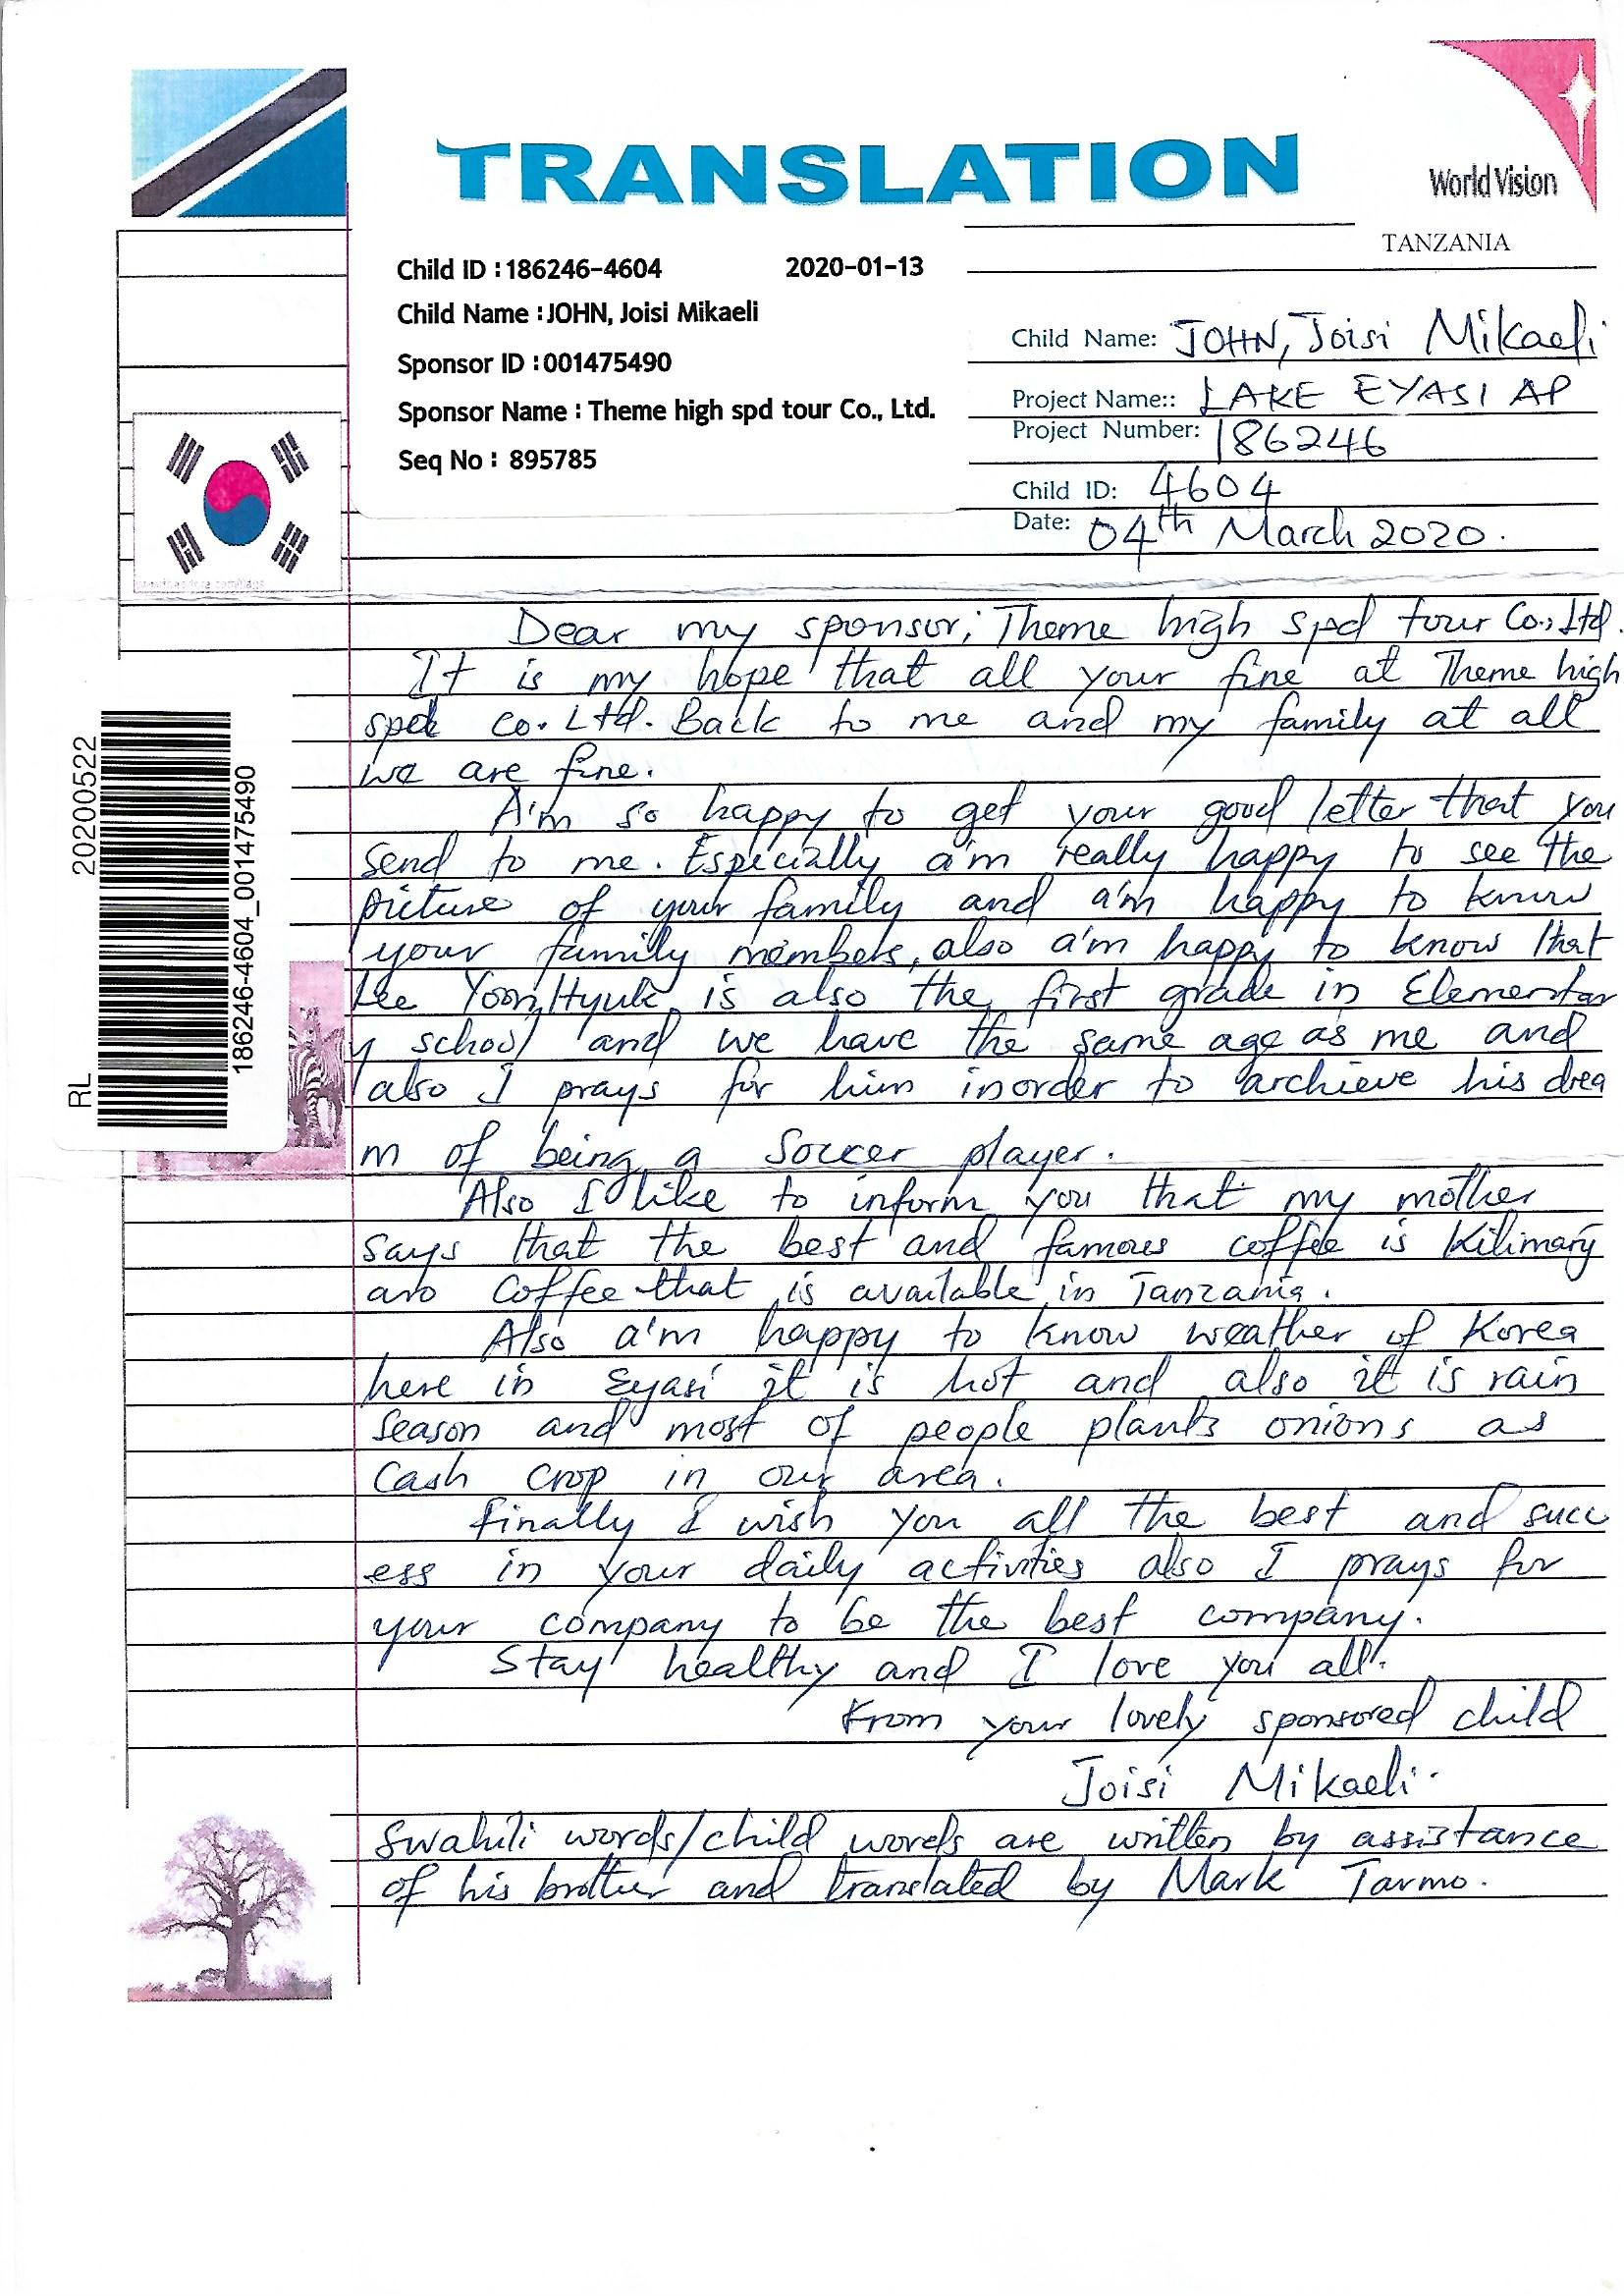 TRANSLATION
World Vision
TANZANIA
Child ID : 186246-4604 2020-01-13
Child Name : JOHN, Joisi Mikaeli
Sponsor ID : 001475490
Sponsor Name : Theme high spd tour Co., Ltd.
Seq No : 895785
Child Name: JOHN, Joisi Mikaeli
Project Name:: LAKE EYASI AP
Project Number: 186246
Child ID: 4604
Date: 04th March 2020.
Dear my sponsor; Theme high spd tour Co., Ltd.
It is my hope that all your fine at Theme high
spd Co. Ltd. Back to me and my family at all
we are fine.
A'm so happy to get your good letter that you
send to me. Especially a'm really happy to see the
picture of your family and a'm happy to know
your family members, also a'm happy to know that
Lee Yoon Hyuk is also the first grade in Elementar
y school and we have the same age as me and
also I prays for him inorder to archieve his drea
m of being a Soccer player.
Also I like to inform you that my mother
says that the best and famous coffee is Kilimanj
aro Coffee that is available in Tanzania.
Also a'm happy to know weather of Korea
here in Eyasi it is hot and also it is rain
season and most of people plants onions as
Cash crop in our area.
finally I wish you all the best and succ
ess in your daily activities also I prays for
your company to be the best company.
Stay healthy and I love you all.
From your lovely sponsored child
Joisi Mikaeli.
Swahili words/child words are written by assistance
of his brother and translated by Mark Tarmo.
RL 20200522
186246-4604_001475490